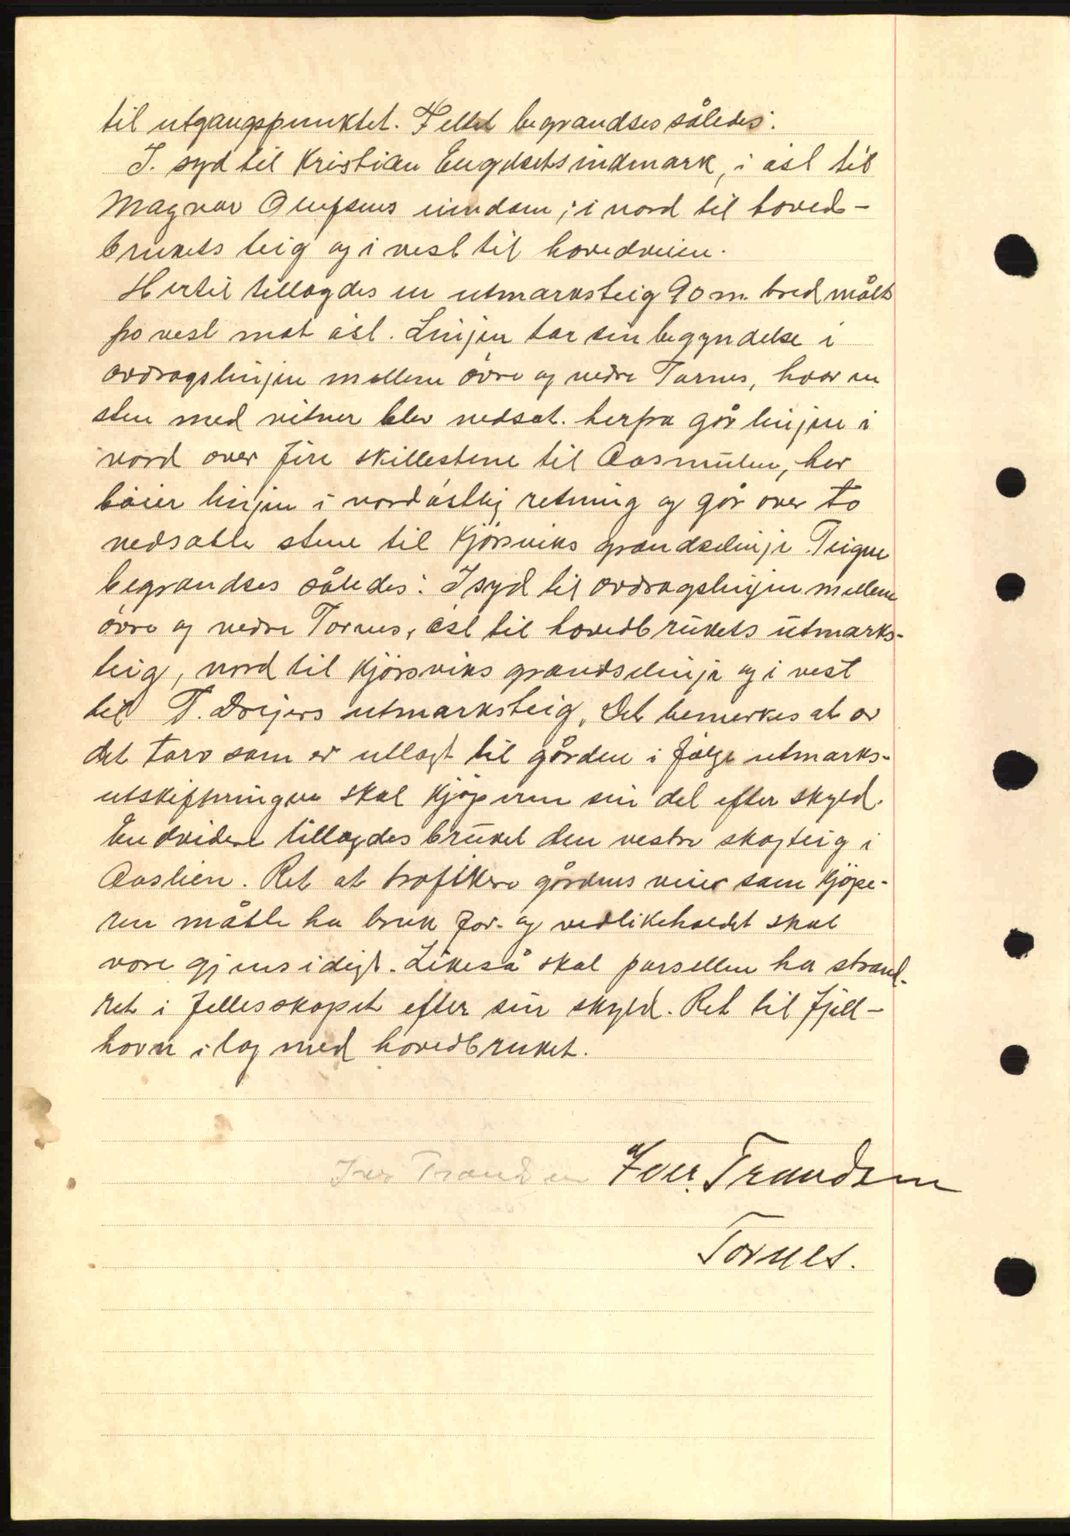 til utgangspunktet. Feltet begrandses således:
I. syd til Kristian Engdsets indmark, i øst til
Magnar Olufsens eindom; i nord til hoved-
brukets teig og i vest til hovedveien.
Hertil tillagdes en utmarksteig 90 m. bred målt
fra vest mot øst. Linjen tar sin begyndelse i
avdragslinjen mellem övre og nedre Tornes, hvor en
sten med vitner blev nedsat. herfra går linjen i
nord over fire skillestene til Aasmulen, her
böier linjen i nordöstlig retning og går over to
nedsatte stene til Kjörsviks grændselinje. Teigen
begrandses således: I syd til avdragslinjen mellem
övre og nedre Tornes, öst til hovedbrukets utmarks-
teig, nord til Kjörsviks grandselinje og i vest
til T. Drejers utmarksteig. Det bemerkes at av
det torv som er utlagt til gården i fölge utmarks-
utskiftningen skal Kjöperen sin del efter skyld.
Endvidere tillagdes bruket den vestre skogteig i
Aaslien. Ret at trafikere gårdens veier som Kjöpe-
ren måtte ha bruk for - og vedlikeholdet skal
være gjensidigt. Likeså skal parsellen ha strand-
ret i fellesskapet efter sin skyld. Ret til fjell-
havn i lag med hovedbruket.
Iver Trandsen Iver. Trandsen
Tornes.